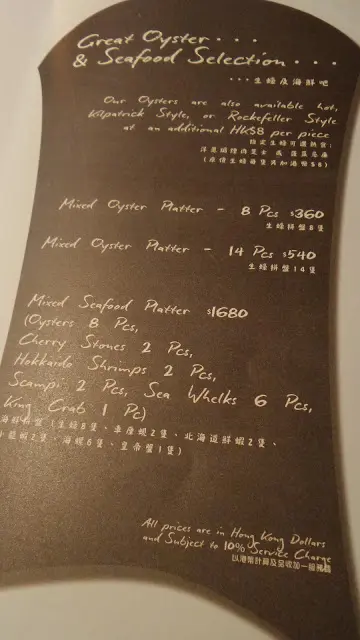 Great Oyster . . .
& Seafood Selection . . .
. . . 生蠔及海鮮吧
Our Oysters are also available hot,
Kilpatrick Style, or Rockefeller Style
at an additional HK$8 per piece
指定生蠔可選熱食:
(原價生蠔每隻另加港幣$8)
Mixed Oyster Platter - 8 Pcs $360
生蠔拼盤8隻
Mixed Oyster Platter - 14 Pcs $540
生蠔拼盤14隻
Mixed Seafood Platter $1680
(Oysters 8 Pcs,
Cherry Stones 2 Pcs,
Hokkaido Shrimps 2 Pcs,
Scampi 2 Pcs, Sea Whelks 6 Pcs,
King Crab 1 Pc)
海鮮拼盤 (生蠔8隻、車厘蜆2隻、北海道鮮蝦2隻、
小龍蝦2隻、海螺6隻、皇帝蟹1隻)
All prices are in Hong Kong Dollars
and Subject to 10% Service Charge
以港幣計算及另收加一服務費